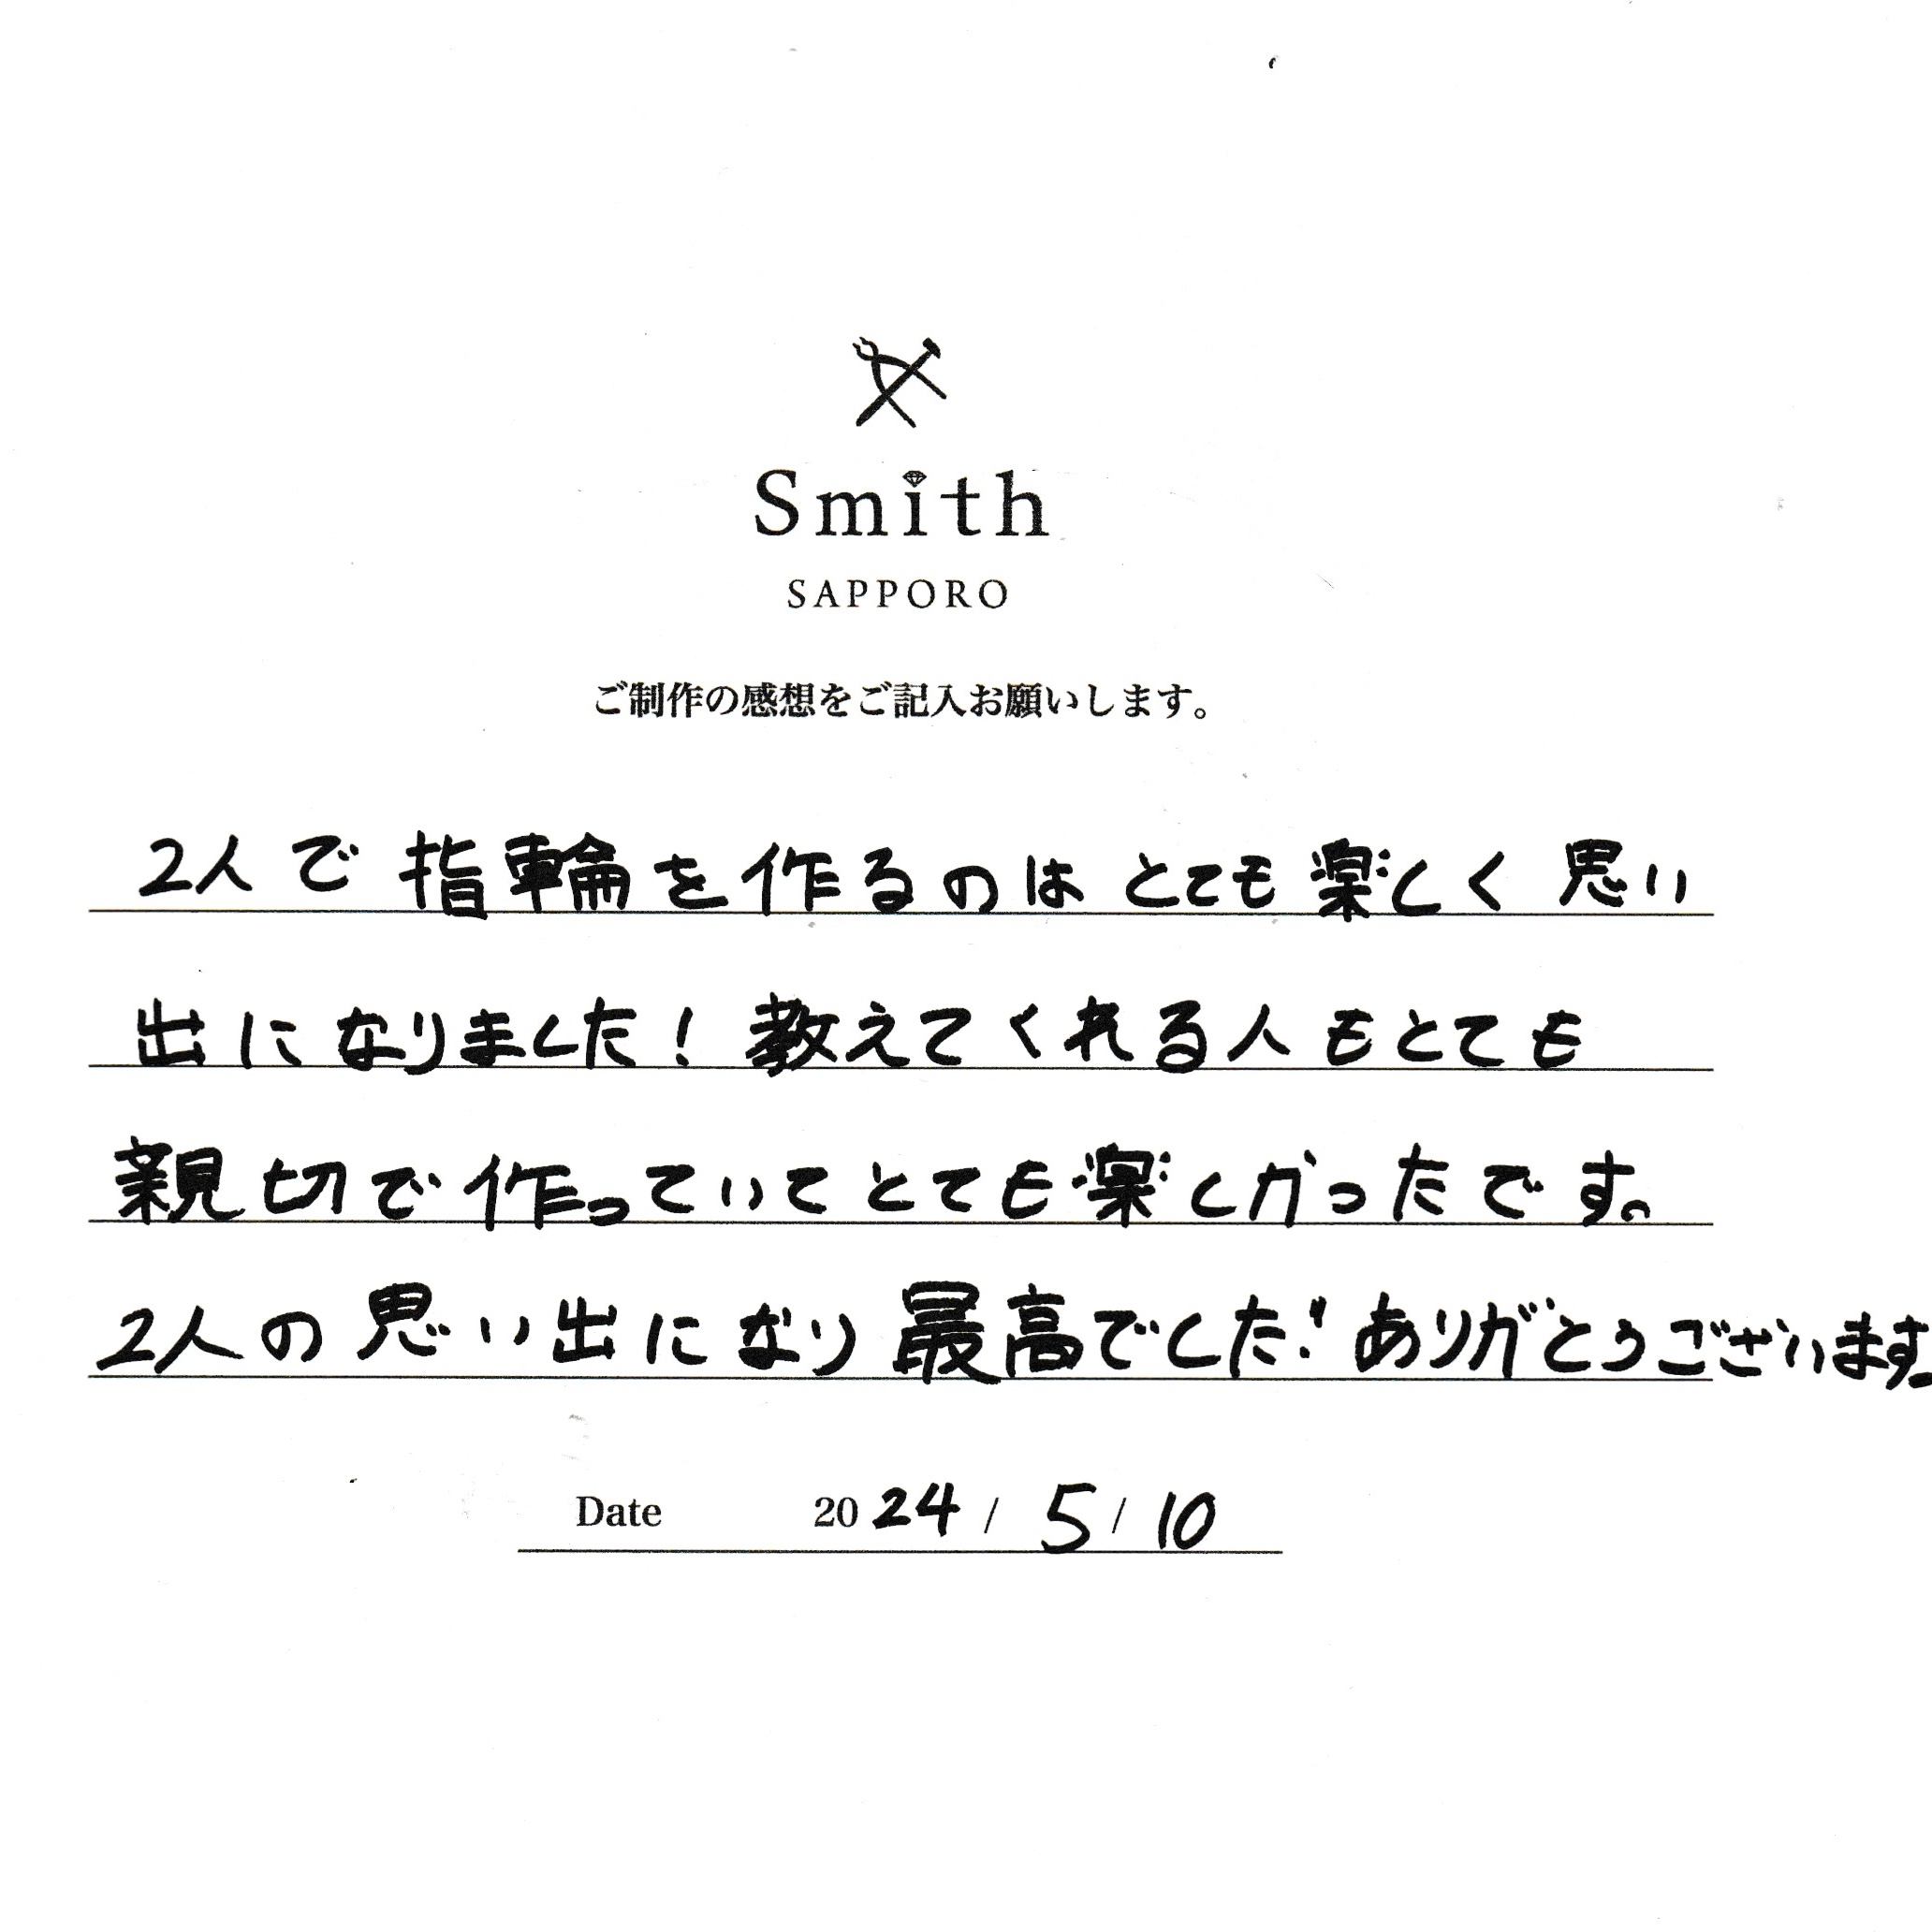 Smith
SAPPORO
ご制作の感想をご記入お願いします。
2人で指輪を作るのはとても楽しく思い
出になりました！教えてくれる人もとても
親切で作っていてとても楽しかったです。
2人の思い出になり最高でした！ありがとうございます
Date 2024/5/10